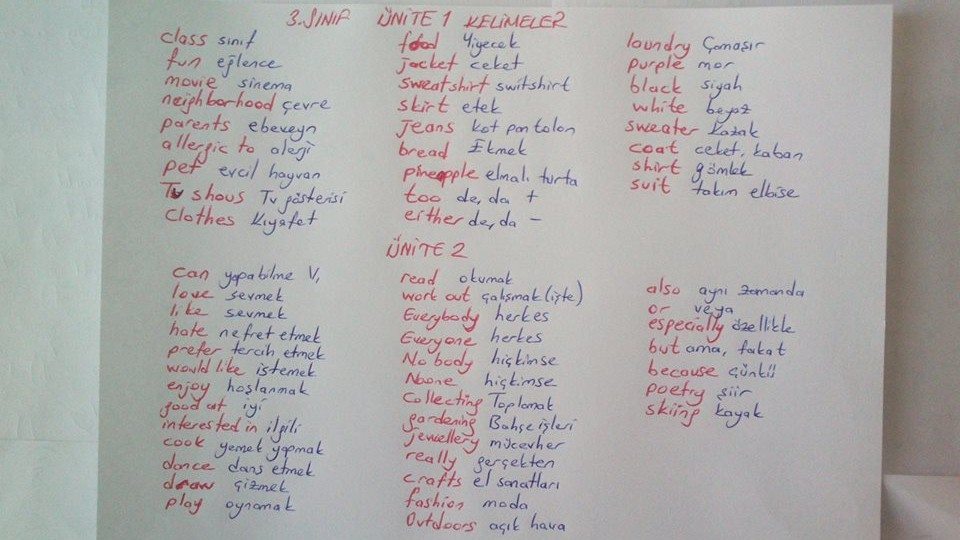 3. SINIF ÜNİTE 1 KELİMELER
class sınıf
fun eğlence
movie sinema
neighborhood çevre
parents ebeveyn
allergic to alerji
pet evcil hayvan
Tv shous Tv gösterisi
Clothes Kıyafet
food Yiyecek
jacket ceket
sweatshirt switshirt
skirt etek
jeans kot pantolon
bread Ekmek
pineapple elmalı turta
too de, da +
either de, da -
laundry Çamaşır
purple mor
black siyah
white beyaz
sweater kazak
coat ceket, kaban
shirt gömlek
suit takım elbise
ÜNİTE 2
can yapabilme V,
love sevmek
like sevmek
hate nefret etmek
prefer tercih etmek
would like istemek
enjoy hoşlanmak
good at iyi
interested in ilgili
cook yemek yapmak
dance dans etmek
draw çizmek
play oynamak
read okumak
work out çalışmak (işte)
Everybody herkes
Everyone herkes
No body hiçkimse
Noone hiçkimse
Collecting Toplamak
gardening Bahçe işleri
jewellery mücevher
really gerçekten
crafts el sanatları
fashion moda
Outdoors açık hava
also aynı zamanda
or veya
especially özellikle
but ama, fakat
because çünkü
poetry şiir
skiing kayak